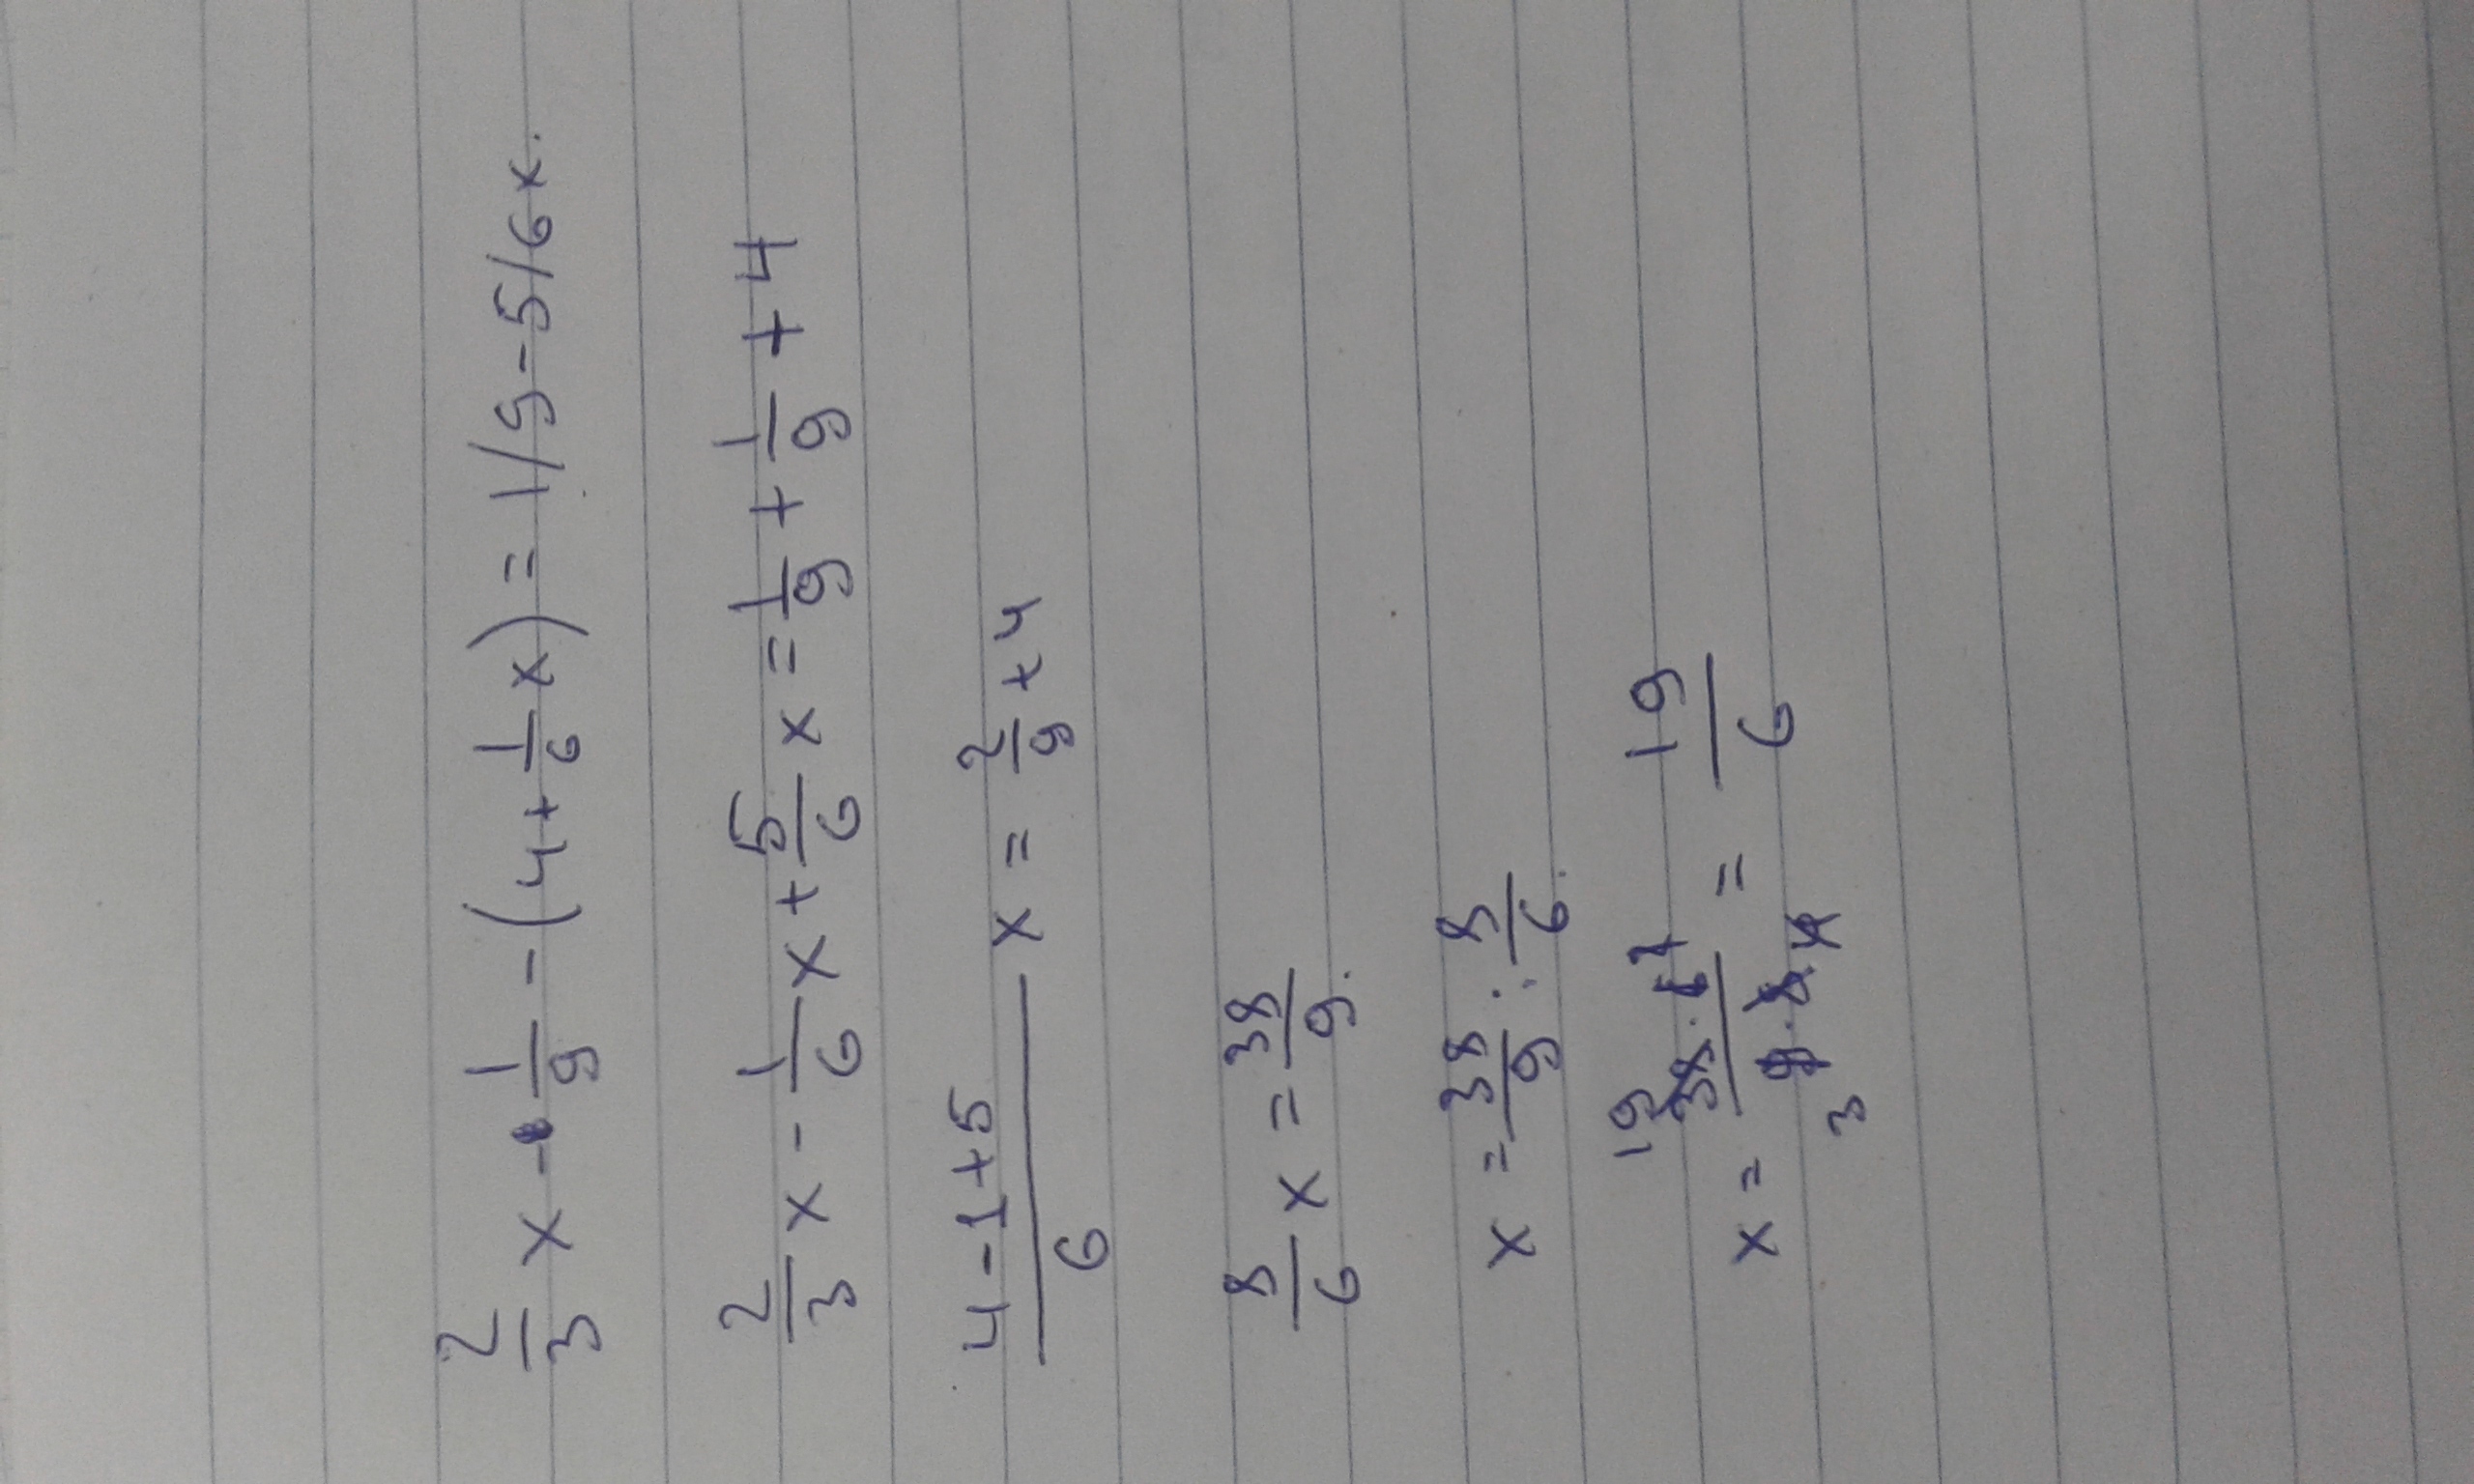 2/3 x - 1/9 - (4 + 1/6 x) = 1/9 - 5/6 x.
2/3 x - 1/6 x + 5/6 x = 1/9 + 1/9 + 4
(4 - 1 + 5)/6 x = 2/9 + 4
8/6 x = 38/9.
x = 38/9 : 8/6.
x = (38 · 6)/(9 · 8) = 19/6